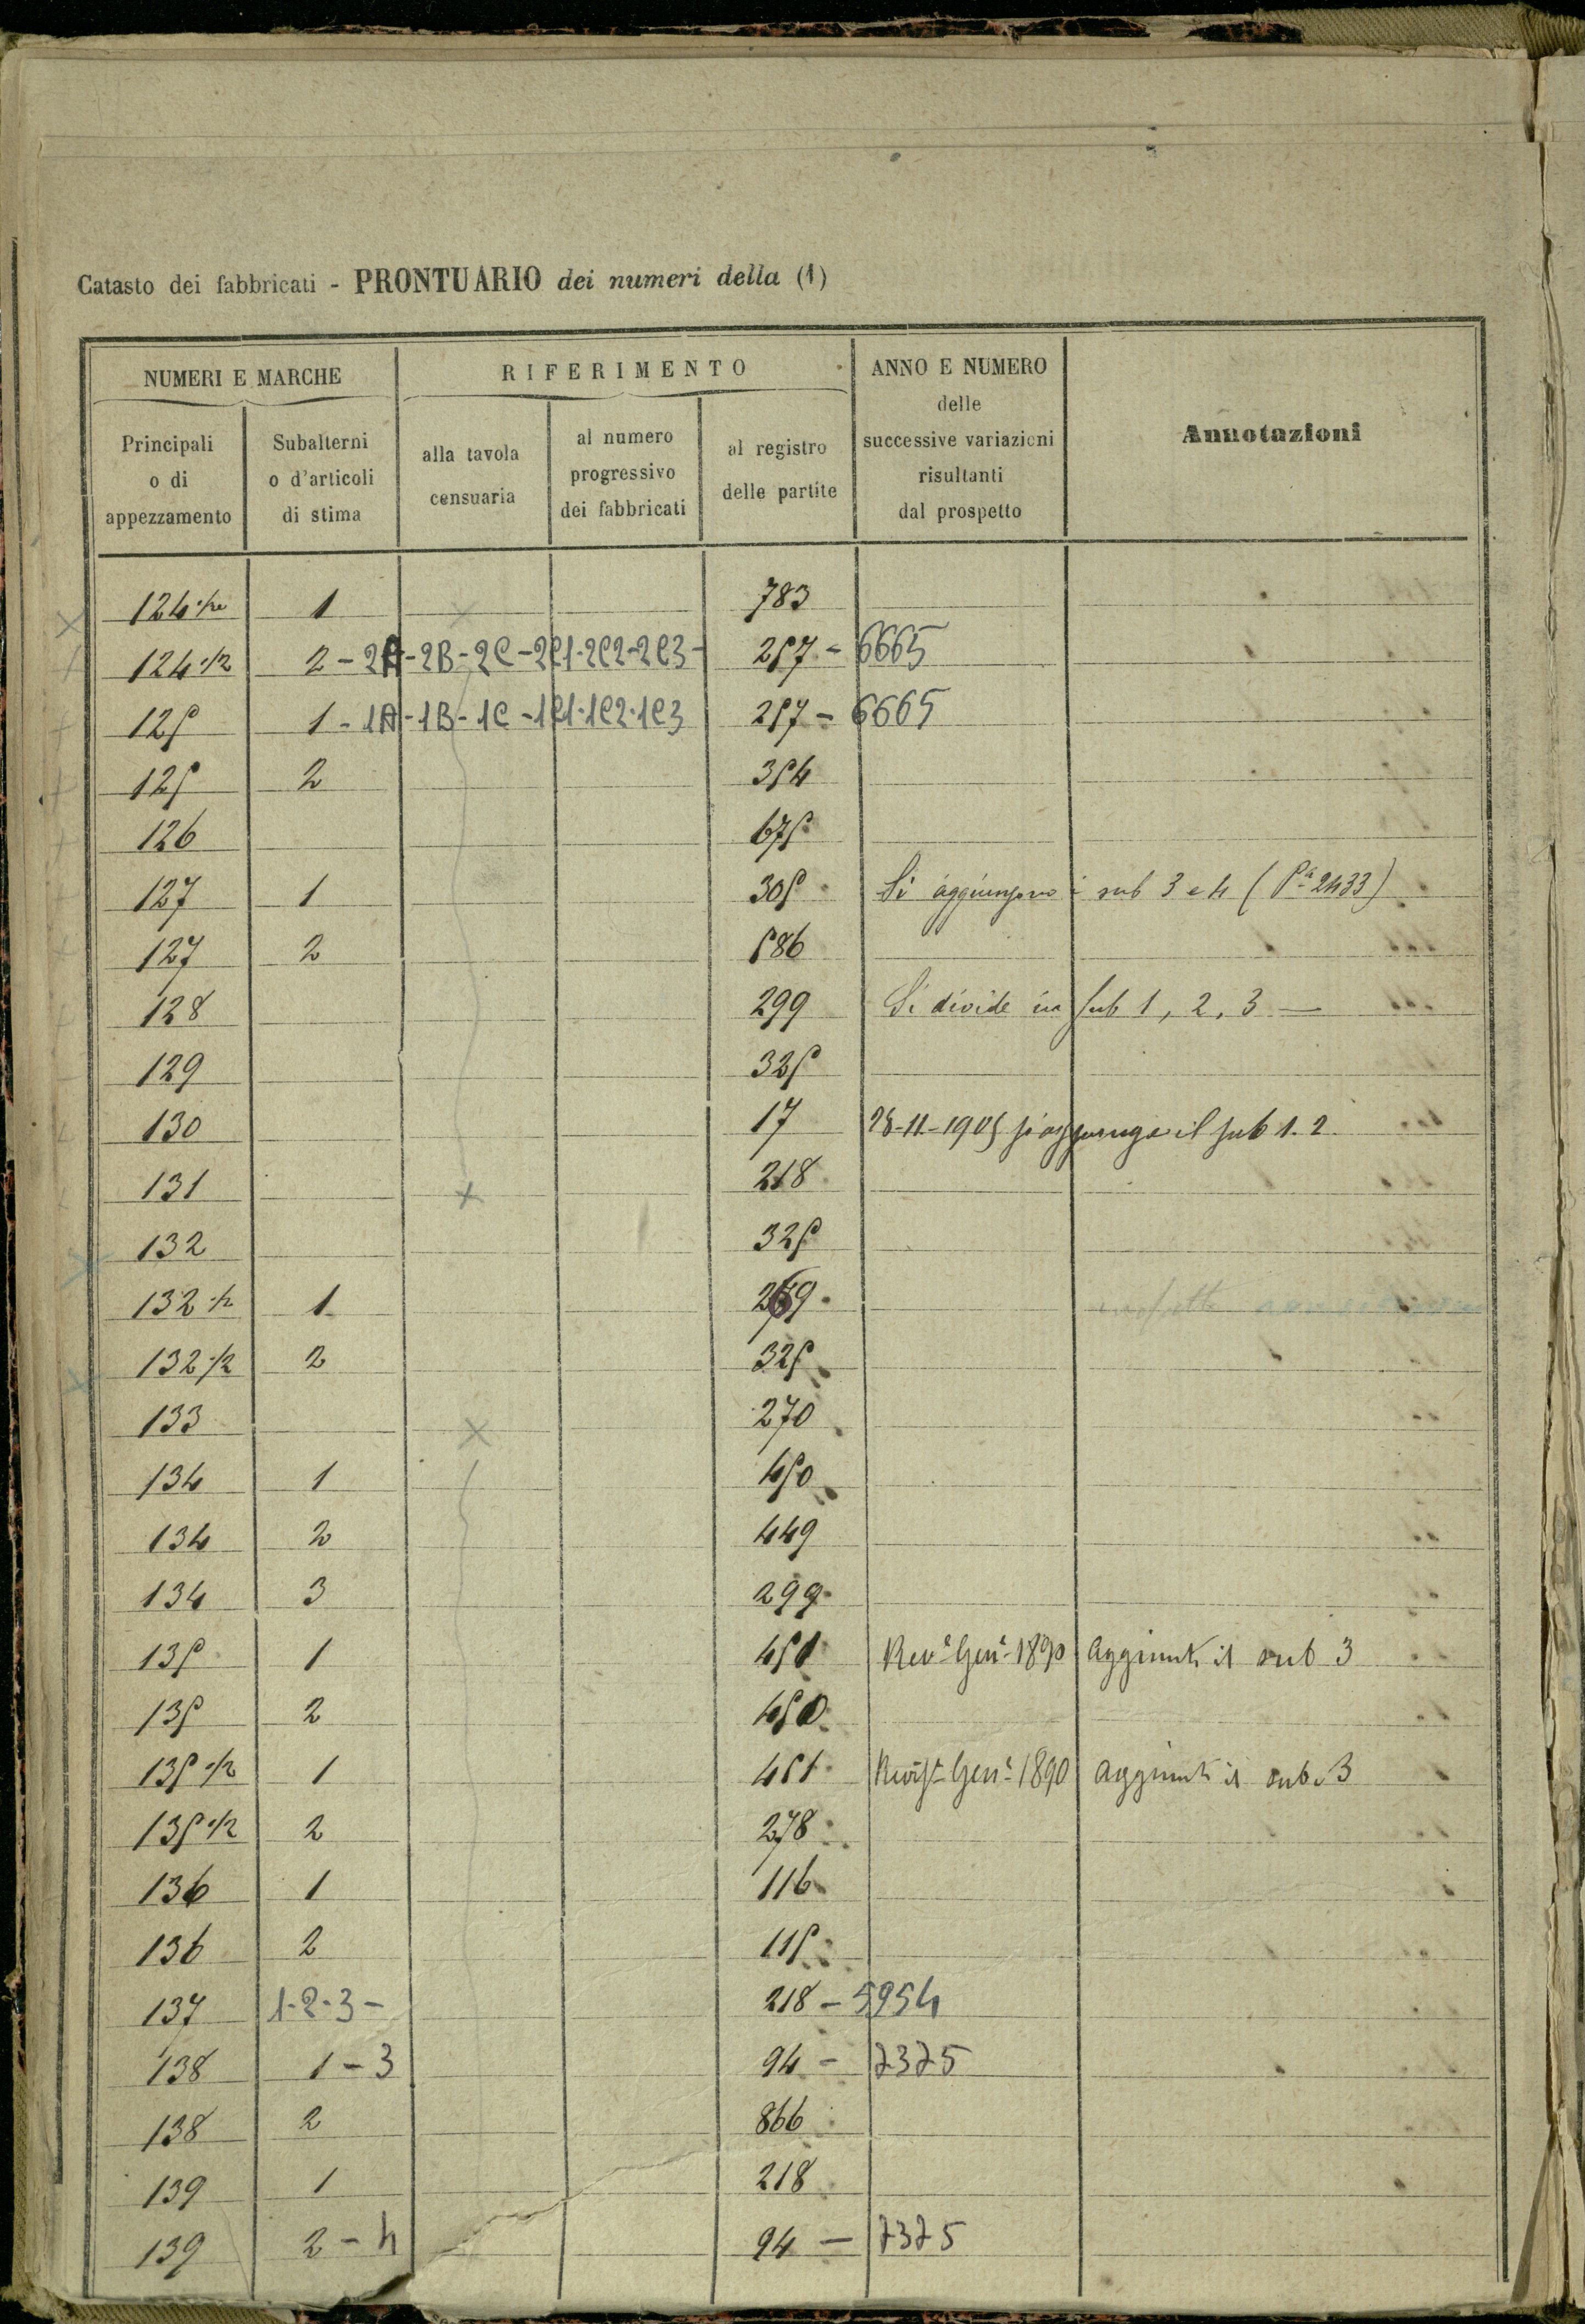 Catasto dei fabbricati - PRONTUARIO dei numeri della (1)
NUMERI E MARCHE
RIFERIMENTO
ANNO E NUMERO
delle
successive variazioni
risultanti
dal prospetto
Annotazioni
Principali
o di
appezzamento
Subalterni
o d'articoli
di stima
alla tavola
censuaria
al numero
progressivo
dei fabbricati
al registro
delle partite
124 1 783
124 1/2 2-2A-2B-2C-2C1-2C2-2C3- 257 - 6665
125 1-1A-1B-1C-1C1-1C2-1C3 257 - 6665
125 2 354
126 675
127 1 305 Si aggiungono i sub 3 e 4 (Pa 2433)
127 2 586
128 299 Si divide in sub 1, 2, 3 —
129 325
130 17 28-11-1905 si aggiunge il sub 1.2
131 218
132 325
132 1/2 1 269
132 1/2 2 325
133 270
134 1 450
134 2 449
134 3 299
135 1 451 Reve Gene 1890 Aggiunto il sub 3
135 2 450
135 1/2 1 451 Gene 1890 Aggiunto il sub. 3
135 1/2 2 278
136 1 116
136 2 115
137 1-2-3- 218 - 5954
138 1-3 94 - 7375
138 2 866
139 1 218
139 2-4 94 - 7375